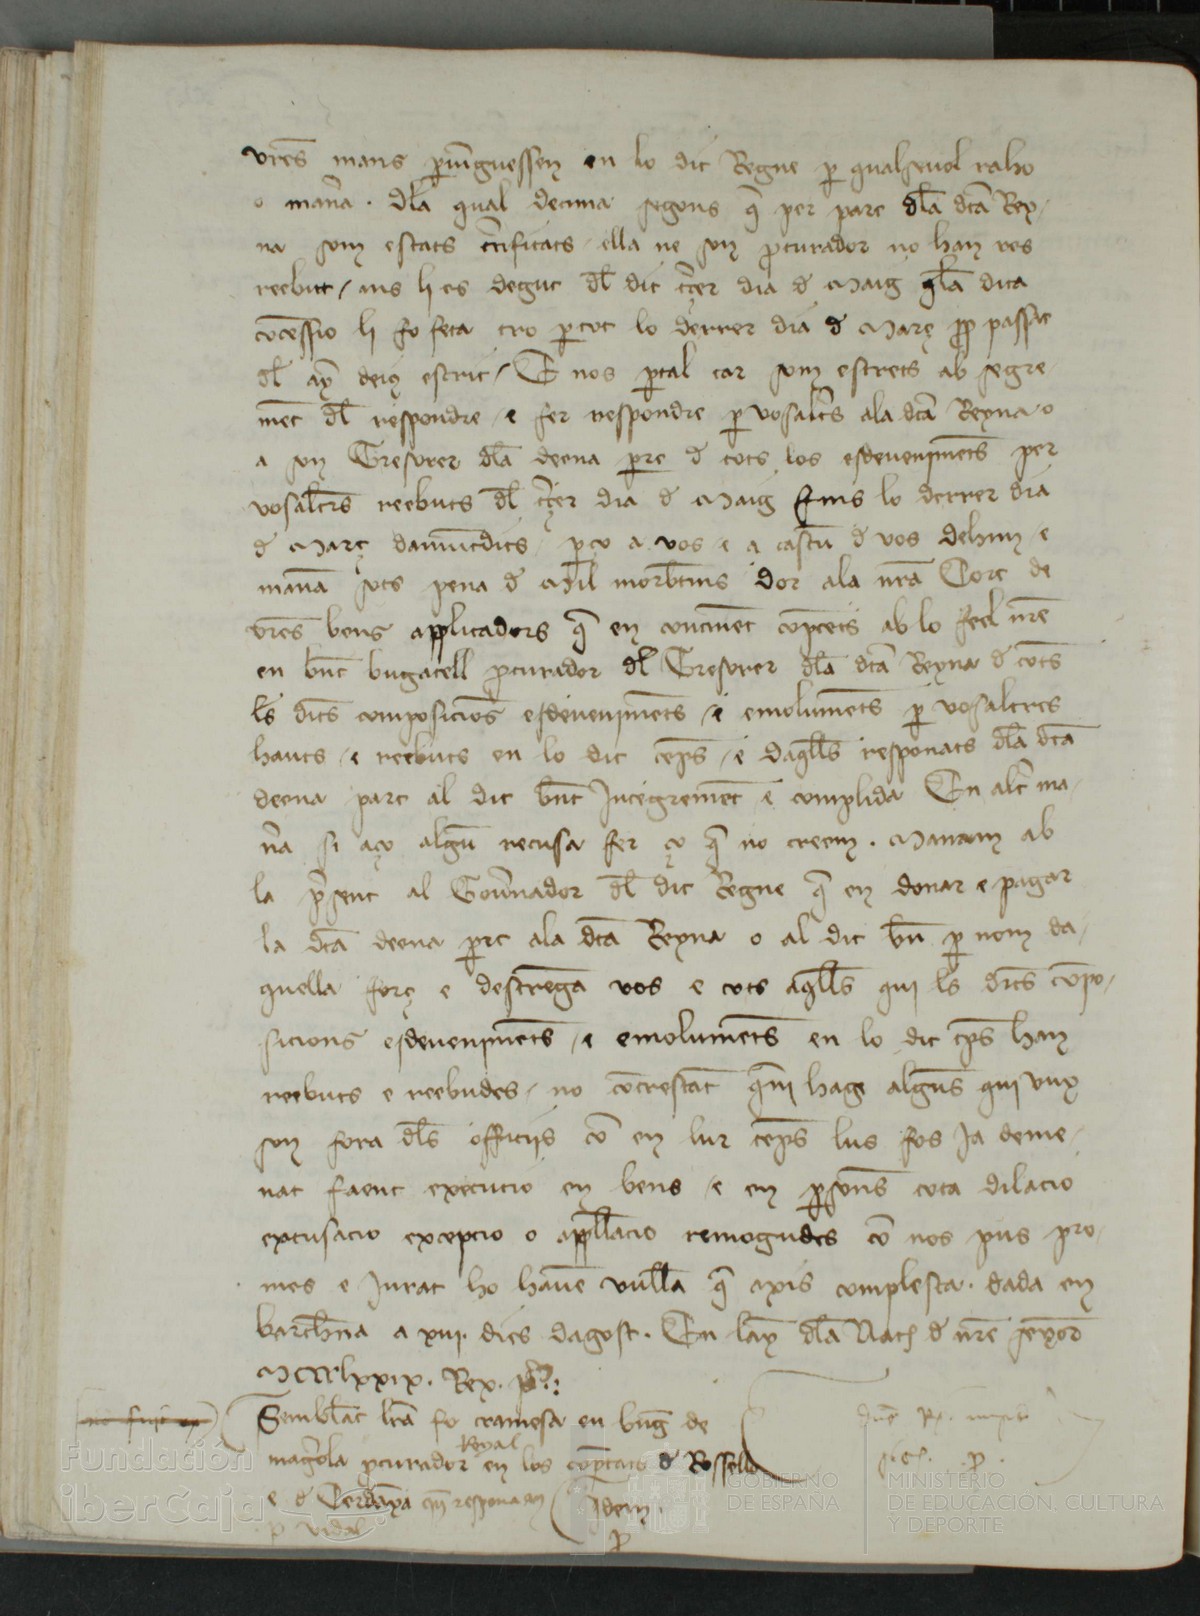 vres mans p̱uinguessen en lo dit Regne p̱ qualseuol raho
o mana͛a . dl̄a qual decima segons q̄ per part dl̄a dc̄a Rey-
na som estats c͛tificats / ella ne son p̱curador no han res
reebut / ans li es degut dl̄ dit t͛çer dia d̄ Maig q̄ la dita
cōcessio li fo feta tro p̱ tot lo derrer dia d̄ Març pp̱ passat
dl̄ ay deius escrit / E nos p̱tal car som estrets ab segre-
mēt dl̄ respondre / e fer respondre p̱ vosalt͛s ala dc̄a Reyna o
a son Tresorer dl̄a deena p̱te d̄ tots los esdeueniments per
vosalt͛s reebuts dl̄ t͛çer dia d̄ Maig fins lo derrer dia
d̄ Març damūtdits / p̱ço a vos / e a cascū d̄ vos dehim / e
manā sots pena d̄ Mil morabtins dor ala nr̄a Cort de
vr̄es bens applicadors q̄ en continēt cōptets ab lo feel nr̄e
en bn̄t bugatell p̱curador dl̄ Tresorer dl̄a dc̄a Reyna d̄ tots
ls̄ dits composicions esdeueniments / e emoluments p̱ vosaltres
hauts / e reebuts en lo dit temps / e daqlls̄ responats dl̄a dc̄a
deena part al dit bn̄t Integrement e complida En alt͛ ma-
n͛a si aço algū recusa fer ço q̄ no creem . Manam ab
la p͛sent al Gou͛nador dl̄ dit Regne q̄ en donar e pagar
la dc̄a deena p̱rt ala dc̄a Reyna o al dit bn̄ p̱ nom da-
quella forç e destrenga vos e tots aqlls̄ qui ls̄ dits cōpo-
sicions esdeueniments / e emoluments en lo dit tp̄s han
reebuts e reebudes / no cōtrestāt q̄ ni hage alguns qui vuy
son fora dls̄ officiis cō en lur temps lus fos Ja deme-
nat faent execucio en bens / e en p̱sons tota dilacio
excusacio excepcio o appll̄acio remogudes cō nos pus pro-
mes e Jurat ho hauē vull̄a q̄ axis complesca . dada en
barchn̄a a xiii . dies dagost . En lay dl̄a Nat̄ d̄ nr̄e senyor
MCCCLxxix . Rex . p̱ .
no fuit ex
Semblāt lr̄a fo tramesa en bn̄g de
mag͛ola p̱curador Reyal en los cōptats d̄ Rossello
e d̄ Cerdanya qn̄ responam
Idem .
p̱
p̱ vidal
Fundación
iberCaja
GOBIERNO
DE ESPAÑA
MINISTERIO
DE EDUCACIÓN, CULTURA
Y DEPORTE